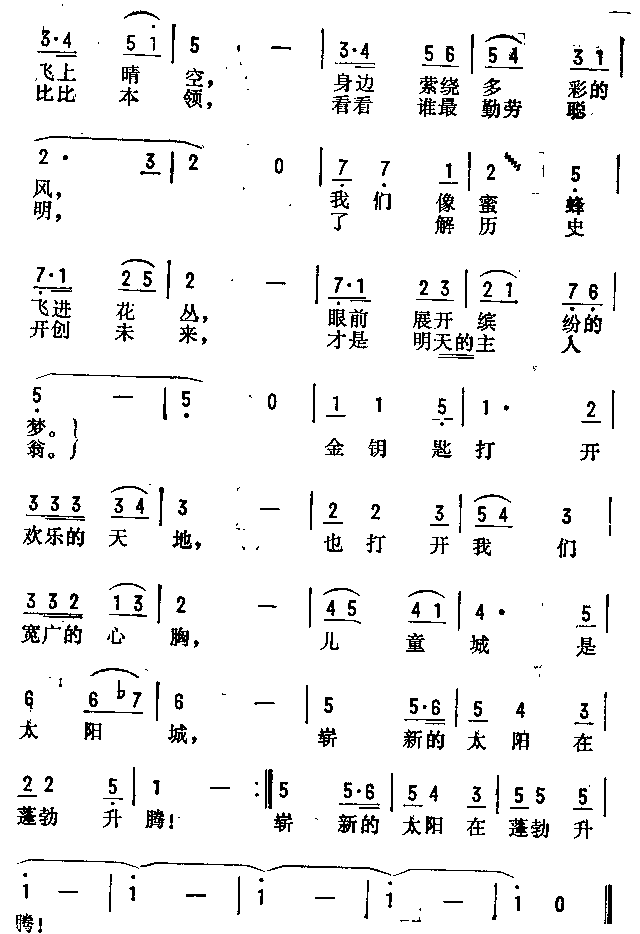 3·4 5 i | 5 — | 3·4 5 6 | 5 4 3 1 |
飞上 晴 空， 身边 萦绕 多 彩的
比比 本 领， 看看 谁最 勤劳 聪
2· 3 | 2 0 | 7 7 1 | 2 5
风， 我 们 像 蜜 蜂
明， 了 解 历 史
7·1 2 5 | 2 — | 7·1 2 3 | 2 1 7 6 |
飞进 花 丛， 眼前 展开 缤 纷的
开创 未 来， 才是 明天的 主 人
5 — | 5 0 | 1 1 5 | 1· 2 |
梦。 金 钥 匙 打 开
翁。
3 3 3 3 4 | 3 — | 2 2 3 | 5 4 3 |
欢乐的 天 地， 也 打 开 我 们
3 3 2 1 3 | 2 — | 4 5 4 1 | 4· 5 |
宽广的 心 胸， 儿 童 城 是
6 6 ♭7 | 6 — | 5 5·6 | 5 4 3 |
太 阳 城， 崭 新的 太 阳 在
2 2 5 | 1 — :‖ 5 5·6 | 5 4 3 | 5 5 5 |
蓬勃 升 腾！ 崭 新的 太阳 在 蓬勃 升
i — | i — | i — | i — | i 0 ‖
腾！